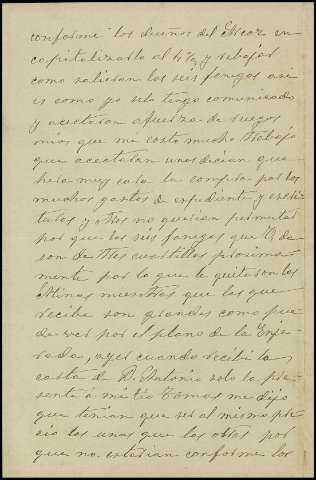 conforme los dueños del Alcor en
capitalizarlo al 4% y rebajar
como salieran las seis fanegas asi
es como yo selo tengo comunicado
y acectaron afuerza de ruegos
mios que me costo mucho trabajo
que acectaran unos decian que
hera muy cara la compra por los
muchos gastos de espediente y escri
turas y otros no querian permutar
por que las seis fanegas que V. da
son de tres cuartillas procsima
mente por lo que le quitaron las
Minas mientras que las que
recibe son grandes como pue
de ver por el plano de la Enje
rada, ayer cuando recibi la
carta de D. Antonio solo la pre
senté a mi tio Tomas me dijo
que tenian que ser al mismo pre
cio las unas que las otras por
que no estarian conforme los